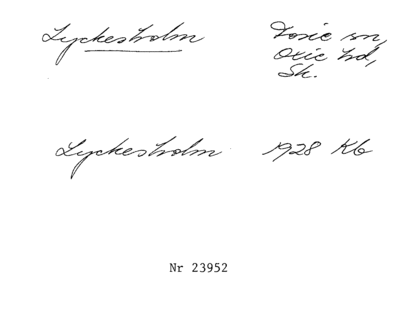 Lyckesholm Törie sn,
Oxie hd,
Sk.
Lyckesholm 1928 Kb
Nr 23952